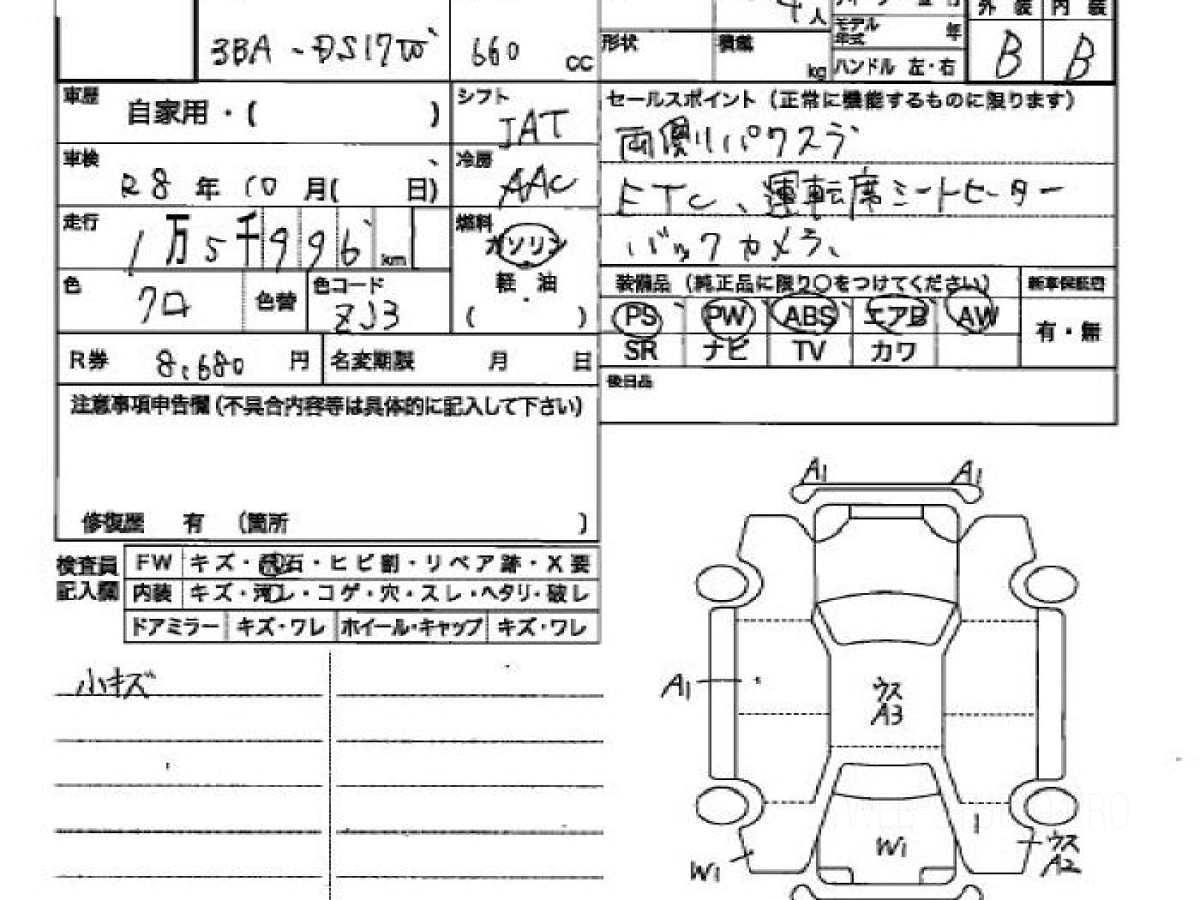 4人
外装 内装
モデル年式 年
3BA-DS17W 660 cc
形状 積載 kg
ハンドル 左・右
B B
車歴 自家用・( )
シフト IAT
セールスポイント (正常に機能するものに限ります)
両側パワスラ
車検 R8年10月( 日)
冷房 AAC
ETC、運転席シートヒーター
走行 1万5千996km
燃料 ガソリン
軽・油
( )
バックカメラ、
色 クロ 色替 色コード ZJ3
装備品 (純正品に限り○をつけてください) 新車保証書
PS PW ABS エアB AW
有・無
SR ナビ TV カワ
R券 8,680円 名変期限 月 日
後日品
注意事項申告欄(不具合内容等は具体的に記入して下さい)
修復歴 有 (箇所 )
検査員記入欄
FW キズ・飛石・ヒビ割・リペア跡・X要
内装 キズ・汚レ・コゲ・穴・スレ・ヘタリ・破レ
ドアミラー キズ・ワレ ホイール・キャップ キズ・ワレ
小キズ
A1 A1
A1
ウス
A3
W1
W1
ウス
A2